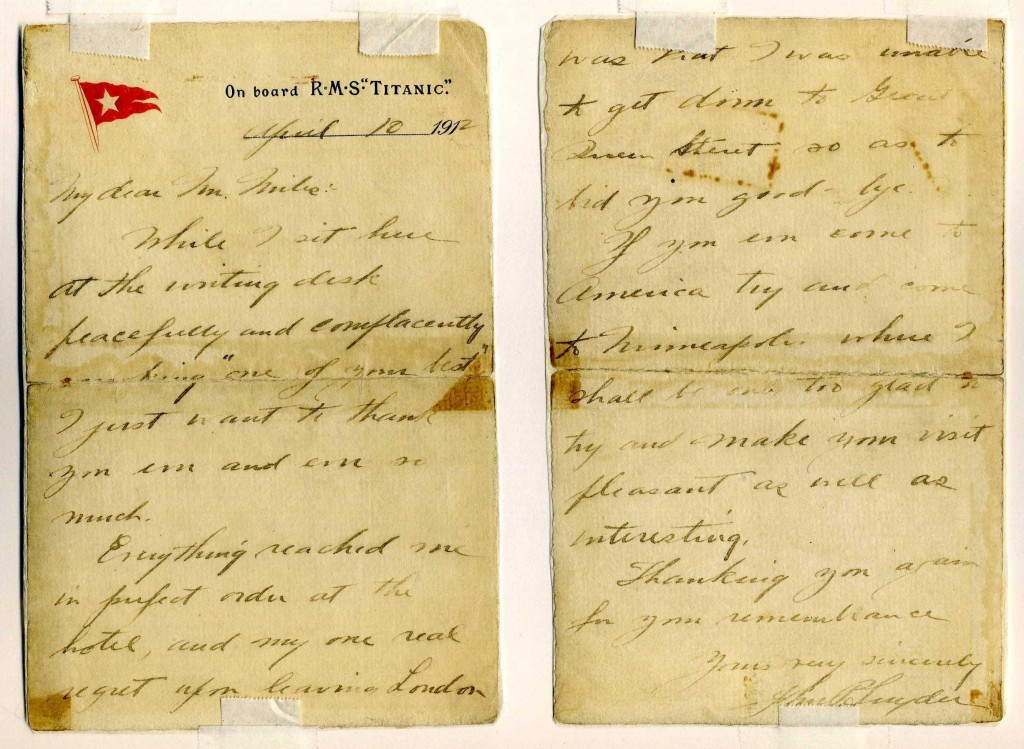 On board R·M·S "TITANIC."
April 10 1912
My dear Mr.
While I sit here
at the writing desk
peacefully and complacently
"one of your best"
I just want to thank
you ever and ever so
much.
Everything reached me
in perfect order at the
hotel, and my one real
regret upon leaving London
was that I was unable
to get down to Great
Queen Street so as to
bid you good-bye.
If you ever come to
America try and come
to Minneapolis where I
shall be too glad to
try and make your visit
pleasant as well as
interesting.
Thanking you again
for your remembrance
Yours very sincerely
John P. Snyder